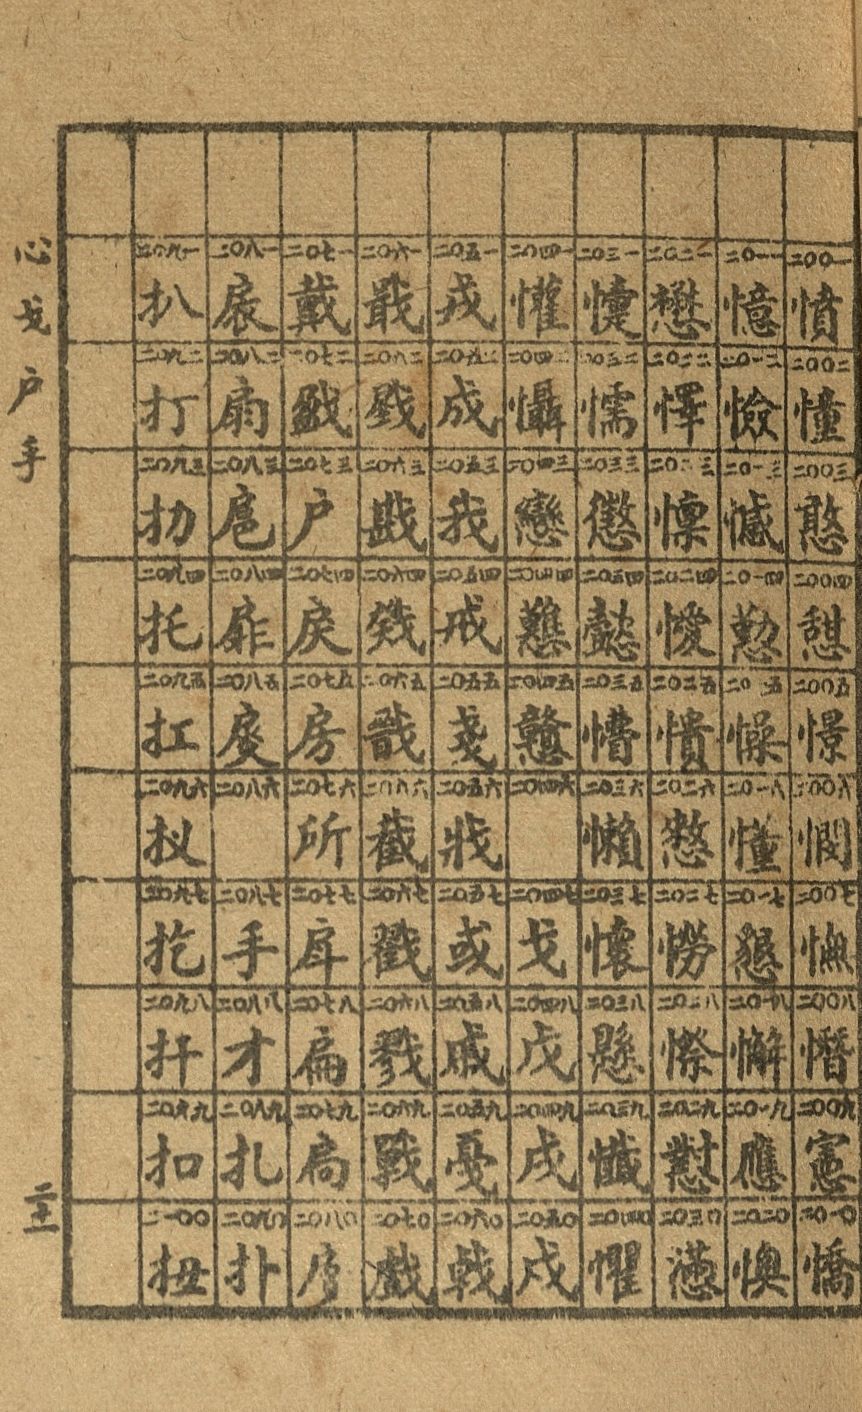 二〇〇一 憤 二〇〇二 憧 二〇〇三 憨 二〇〇四 憩 二〇〇五 憬 二〇〇六 憫 二〇〇七 憮 二〇〇八 憯 二〇〇九 憲 二〇一〇 憍
二〇一一 憶 二〇一二 憸 二〇一三 憾 二〇一四 懃 二〇一五 懆 二〇一六 懂 二〇一七 懇 二〇一八 懈 二〇一九 應 二〇二〇 懊
二〇二一 懋 二〇二二 懌 二〇二三 懍 二〇二四 懓 二〇二五 憒 二〇二六 憋 二〇二七 憦 二〇二八 憏 二〇二九 懟 二〇三〇 懣
二〇三一 懥 二〇三二 懦 二〇三三 懲 二〇三四 懿 二〇三五 懵 二〇三六 懶 二〇三七 懷 二〇三八 懸 二〇三九 懺 二〇四〇 懼
二〇四一 懽 二〇四二 懾 二〇四三 戀 二〇四四 二〇四五 戇 二〇四六 二〇四七 戈 二〇四八 戊 二〇四九 戌 二〇五〇 戍
二〇五一 戎 二〇五二 成 二〇五三 我 二〇五四 戒 二〇五五 戔 二〇五六 戕 二〇五七 或 二〇五八 戚 二〇五九 戛 二〇六〇 戟
二〇六一 戢 二〇六二 二〇六三 戡 二〇六四 戣 二〇六五 二〇六六 截 二〇六七 戳 二〇六八 戮 二〇六九 戰 二〇七〇 戲
二〇七一 戴 二〇七二 二〇七三 户 二〇七四 戾 二〇七五 房 二〇七六 所 二〇七七 戽 二〇七八 扁 二〇七九 扃 二〇八〇 扅
二〇八一 扆 二〇八二 扇 二〇八三 扈 二〇八四 扉 二〇八五 扊 二〇八六 二〇八七 手 二〇八八 才 二〇八九 扎 二〇九〇 扑
二〇九一 扒 二〇九二 打 二〇九三 扐 二〇九四 托 二〇九五 扛 二〇九六 扠 二〇九七 扢 二〇九八 扞 二〇九九 扣 二一〇〇 扭
心戈户手
二十一